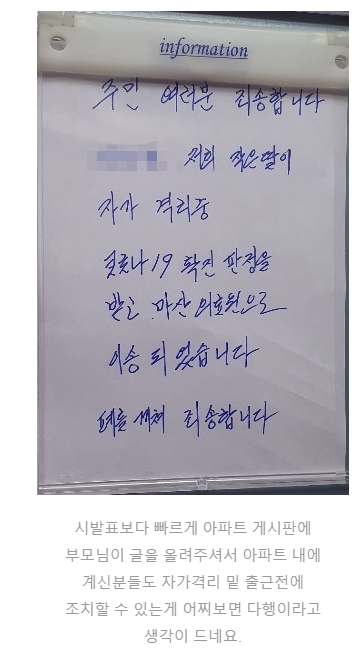 information
주민 여러분 죄송합니다
저희 작은딸이
자가 격리중
코로나19 확진 판정을
받고 마산의료원으로
이송 되었습니다
폐를 끼쳐 죄송합니다
시발표보다 빠르게 아파트 게시판에
부모님이 글을 올려주셔서 아파트 내에
계신분들도 자가격리 밑 출근전에
조치할 수 있는게 어찌보면 다행이라고
생각이 드네요.